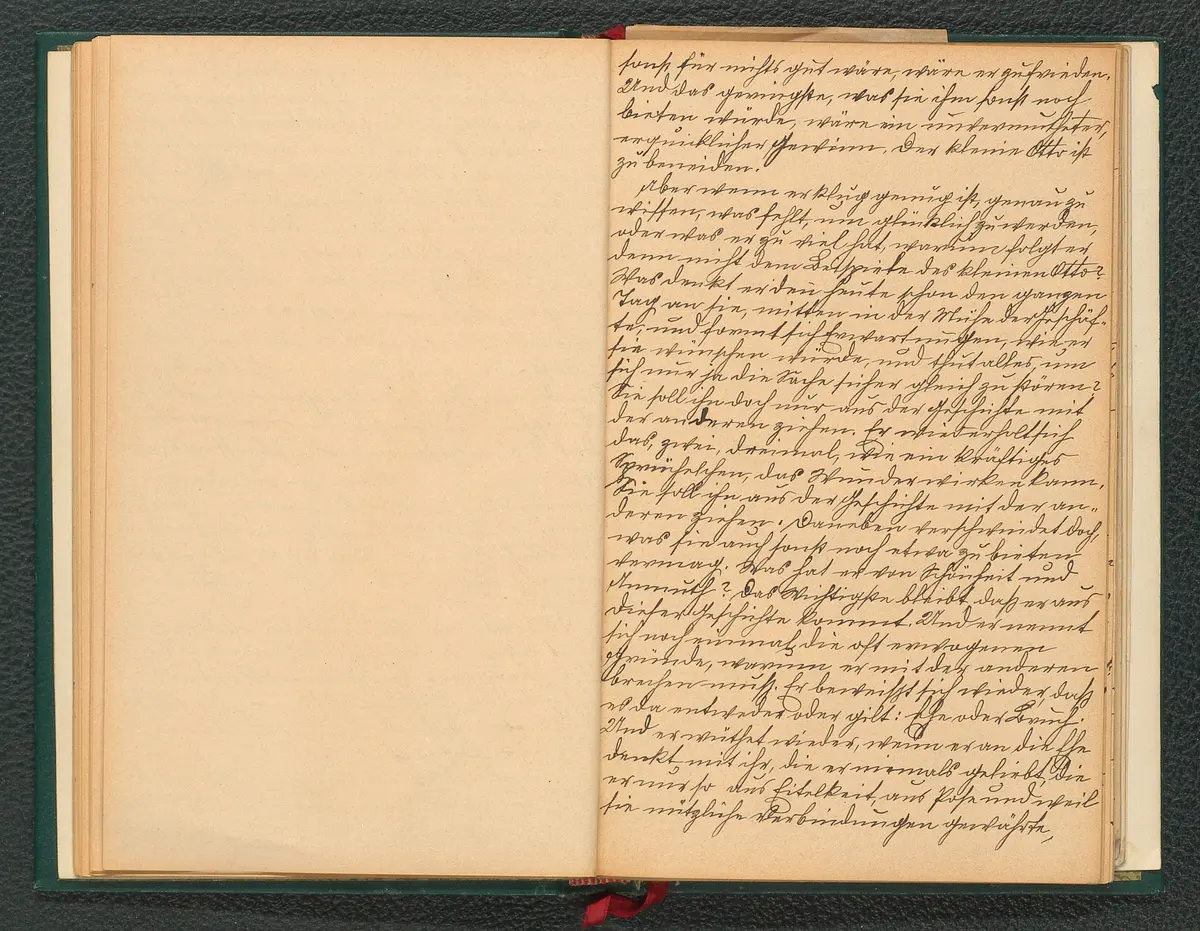 sonst für nichts gut wäre, wäre er zufrieden.
Und das geringste, was sie ihm sonst noch
bieten würde, wäre ein unvermutheter,
erquicklicher Gewinn. Der kleine Otto ist
zu beneiden.
Aber wenn er klug genug ist, genau zu
wissen, was fehlt, um glücklich zu werden,
oder was er zu viel hat, warum folgt er
denn nicht dem Beispiele des kleinen Otto?
Was denkt er den heute schon den ganzen
Tag an sie, mitten in der Mühe der Geschäf-
te, und formt sich Erwartungen, wie er
sie wünschen würde, und thut alles, um
sich nur ja die Sache sicher gleich zu stören?
Sie soll ihn doch nur aus der Geschichte mit
der anderen ziehen. Er wiederholt sich
das, zwei, dreimal, wie ein kräftiges
Sprüchelchen, das Wunder wirken kann.
Sie soll ihn aus der Geschichte mit der an-
deren ziehen. Daneben verschwindet doch,
was sie auch sonst noch etwa zu bieten
vermag. Was hat er von Schönheit und
Anmuth? Das Wichtigste bleibt, daß er aus
dieser Geschichte kommt. Und er nennt
sich noch einmal die oft erwogenen
Gründe, warum er mit der anderen
brechen muss. Er beweist sich wieder, daß
es da entweder oder gilt: Ehe oder Bruch.
Und er wüthet wieder, wenn er an die Ehe
denkt mit ihr, die er niemals geliebt, die
er nur so aus Eitelkeit, aus Pose und weil
sie nützliche Verbindungen gewährte,